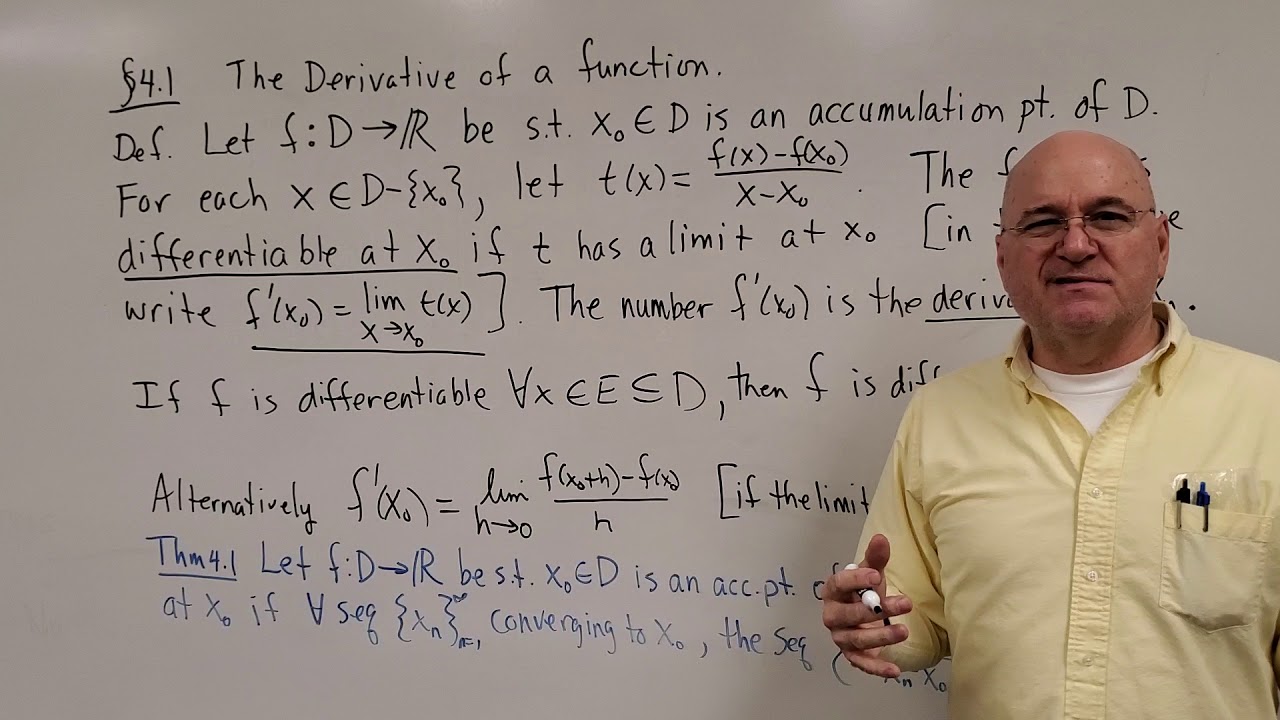 §4.1 The Derivative of a function.
Def. Let f: D→ℝ be s.t. x₀ ∈ D is an accumulation pt. of D.
For each x ∈ D-{x₀}, let t(x) = (f(x)-f(x₀))/(x-x₀). The
differentiable at x₀ if t has a limit at x₀ [in
write f'(x₀) = lim x→x₀ t(x)]. The number f'(x₀) is the
If f is differentiable ∀x ∈ E ⊆ D, then f is
Alternatively f'(x₀) = lim h→0 (f(x₀+h)-f(x₀))/h [if the limit
Thm 4.1 Let f: D→ℝ be s.t. x₀ ∈ D is an acc. pt.
at x₀ if ∀ seq {xₙ}ₙ₌₁^∞ converging to x₀, the seq